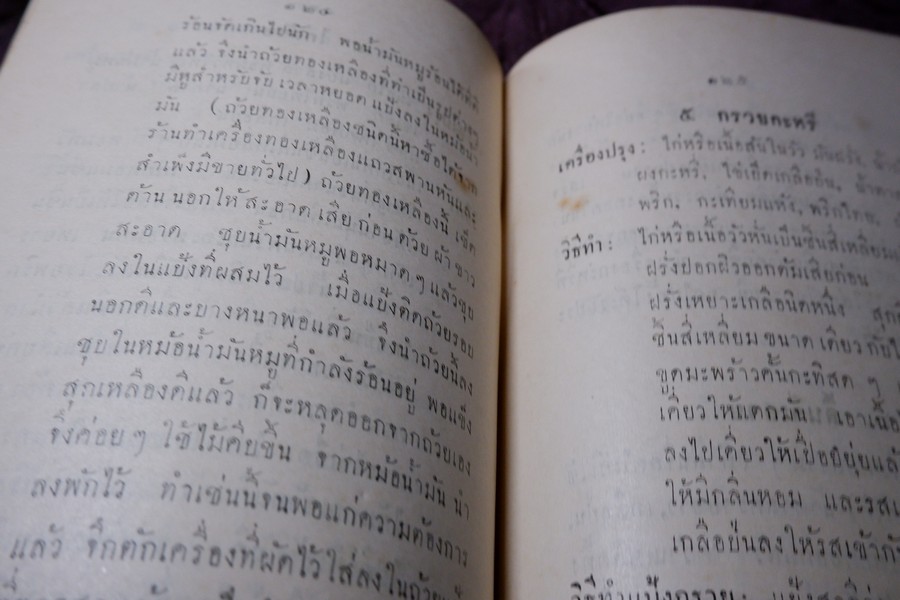 ๑๒๔
ร้อนจัดเกินไปนัก พอน้ำมันหมูร้อนได้ที่ดี
แล้ว จึงนำถ้วยทองเหลืองที่ทำเป็นรูปต่างๆ
มีหูสำหรับจับ เวลาหยอดแป้งลงในหม้อน้ำ
มัน (ถ้วยทองเหลืองชนิดนี้หาซื้อได้จาก
ร้านทำเครื่องทองเหลืองแถวสพานหันและ
สำเพ็งมีขายทั่วไป) ถ้วยทองเหลืองนี้ เช็ด
ด้านนอกให้สะอาดเสียก่อนด้วยผ้าขาว
สะอาด ชุบน้ำมันหมูพอหมาดๆแล้วชุบ
ลงในแป้งที่ผสมไว้ เมื่อแป้งติดถ้วยรอบ
นอกดีและบางหนาพอแล้ว จึงนำถ้วยนี้ลง
ชุบในหม้อน้ำมันหมูที่กำลังร้อนอยู่ พอแข็ง
สุกเหลืองดีแล้ว ก็จะหลุดออกจากถ้วยเอง
จึงค่อยๆ ใช้ไม้คีบขึ้น จากหม้อน้ำมัน นำ
ลงพักไว้ ทำเช่นนี้จนพอแก่ความต้องการ
แล้ว จึ่งตักเครื่องที่ผัดไว้ใส่ลงในถ้วย
๑๒๕
๕ กรวยกะหรี่
เครื่องปรุง: ไก่หรือเนื้อสันในวัว มันฝรั่ง,
ผงกะหรี่, ไข่เป็ดเกลือป่น,
พริก, กะเทียมแห้ง, พริกไทย,
วิธีทำ: ไก่หรือเนื้อวัวหั่นเป็นชิ้นสี่เหลี่ยม
ฝรั่งปอกผิวออกต้มเสียก่อน
ฝรั่งเหยาะเกลือนิดหนึ่ง
ชิ้นสี่เหลี่ยม ขนาดเดียวกับ
ขูดมะพร้าวคั้นกะทิสด ๆ
เคี่ยวให้แตกมัน เอาเนื้อ
ลงไปเคี่ยวให้เปื่อยยุ่ยแล้ว
ให้มีกลิ่นหอม และรส
เกลือป่นลงให้รสเข้า
วิธีทำแป้งกรวย: